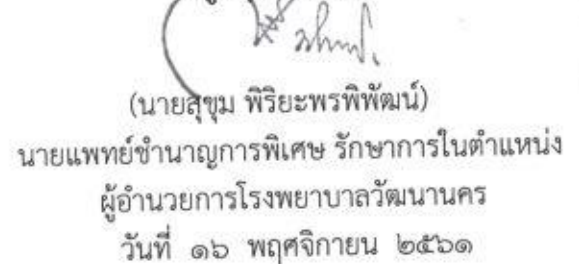 (นายสุขุม พิริยะพรพิพัฒน์)
นายแพทย์ชำนาญการพิเศษ รักษาการในตำแหน่ง
ผู้อำนวยการโรงพยาบาลวัฒนานคร
วันที่ ๑๖ พฤศจิกายน ๒๕๖๑